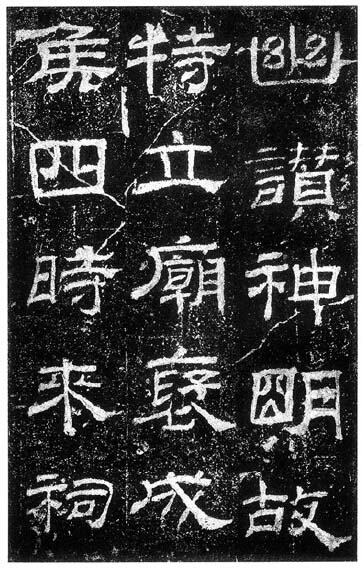 幽讃神明故
特立廟襃成
侯四時来祠